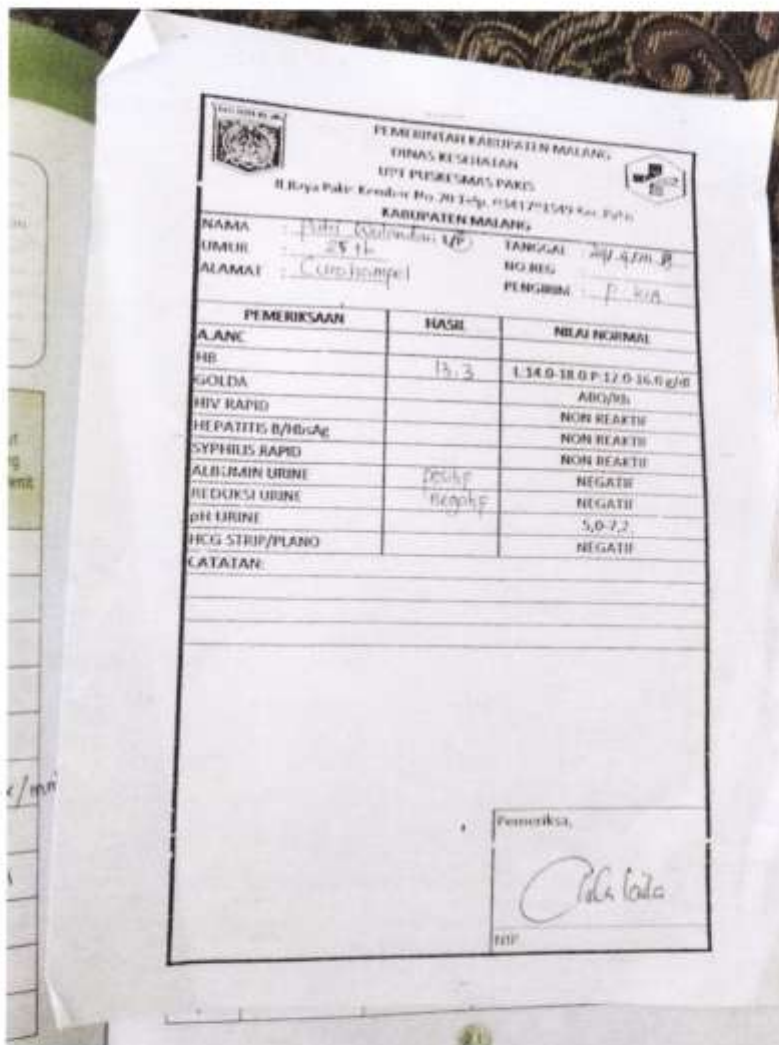 PEMERINTAH KABUPATEN MALANG
DINAS KESEHATAN
UPT PUSKESMAS PAKIS
KABUPATEN MALANG
NAMA : Putri Wulandari L/P
TANGGAL :
UMUR : 25 th
NO REG
ALAMAT :
PENGIRIM : P. KIA
PEMERIKSAAN HASIL NILAI NORMAL
A.ANC
HB 13.3 L 14.0-18.0 P 12.0-16.0 g/dl
GOLDA ABO/Rh
HIV RAPID NON REAKTIF
HEPATITIS B/HbsAg NON REAKTIF
SYPHILIS RAPID NON REAKTIF
ALBUMIN URINE positif NEGATIF
REDUKSI URINE negatif NEGATIF
pH URINE 5,0-7,2
HCG STRIP/PLANO NEGATIF
CATATAN:
x/mnt
Pemeriksa,
NIP